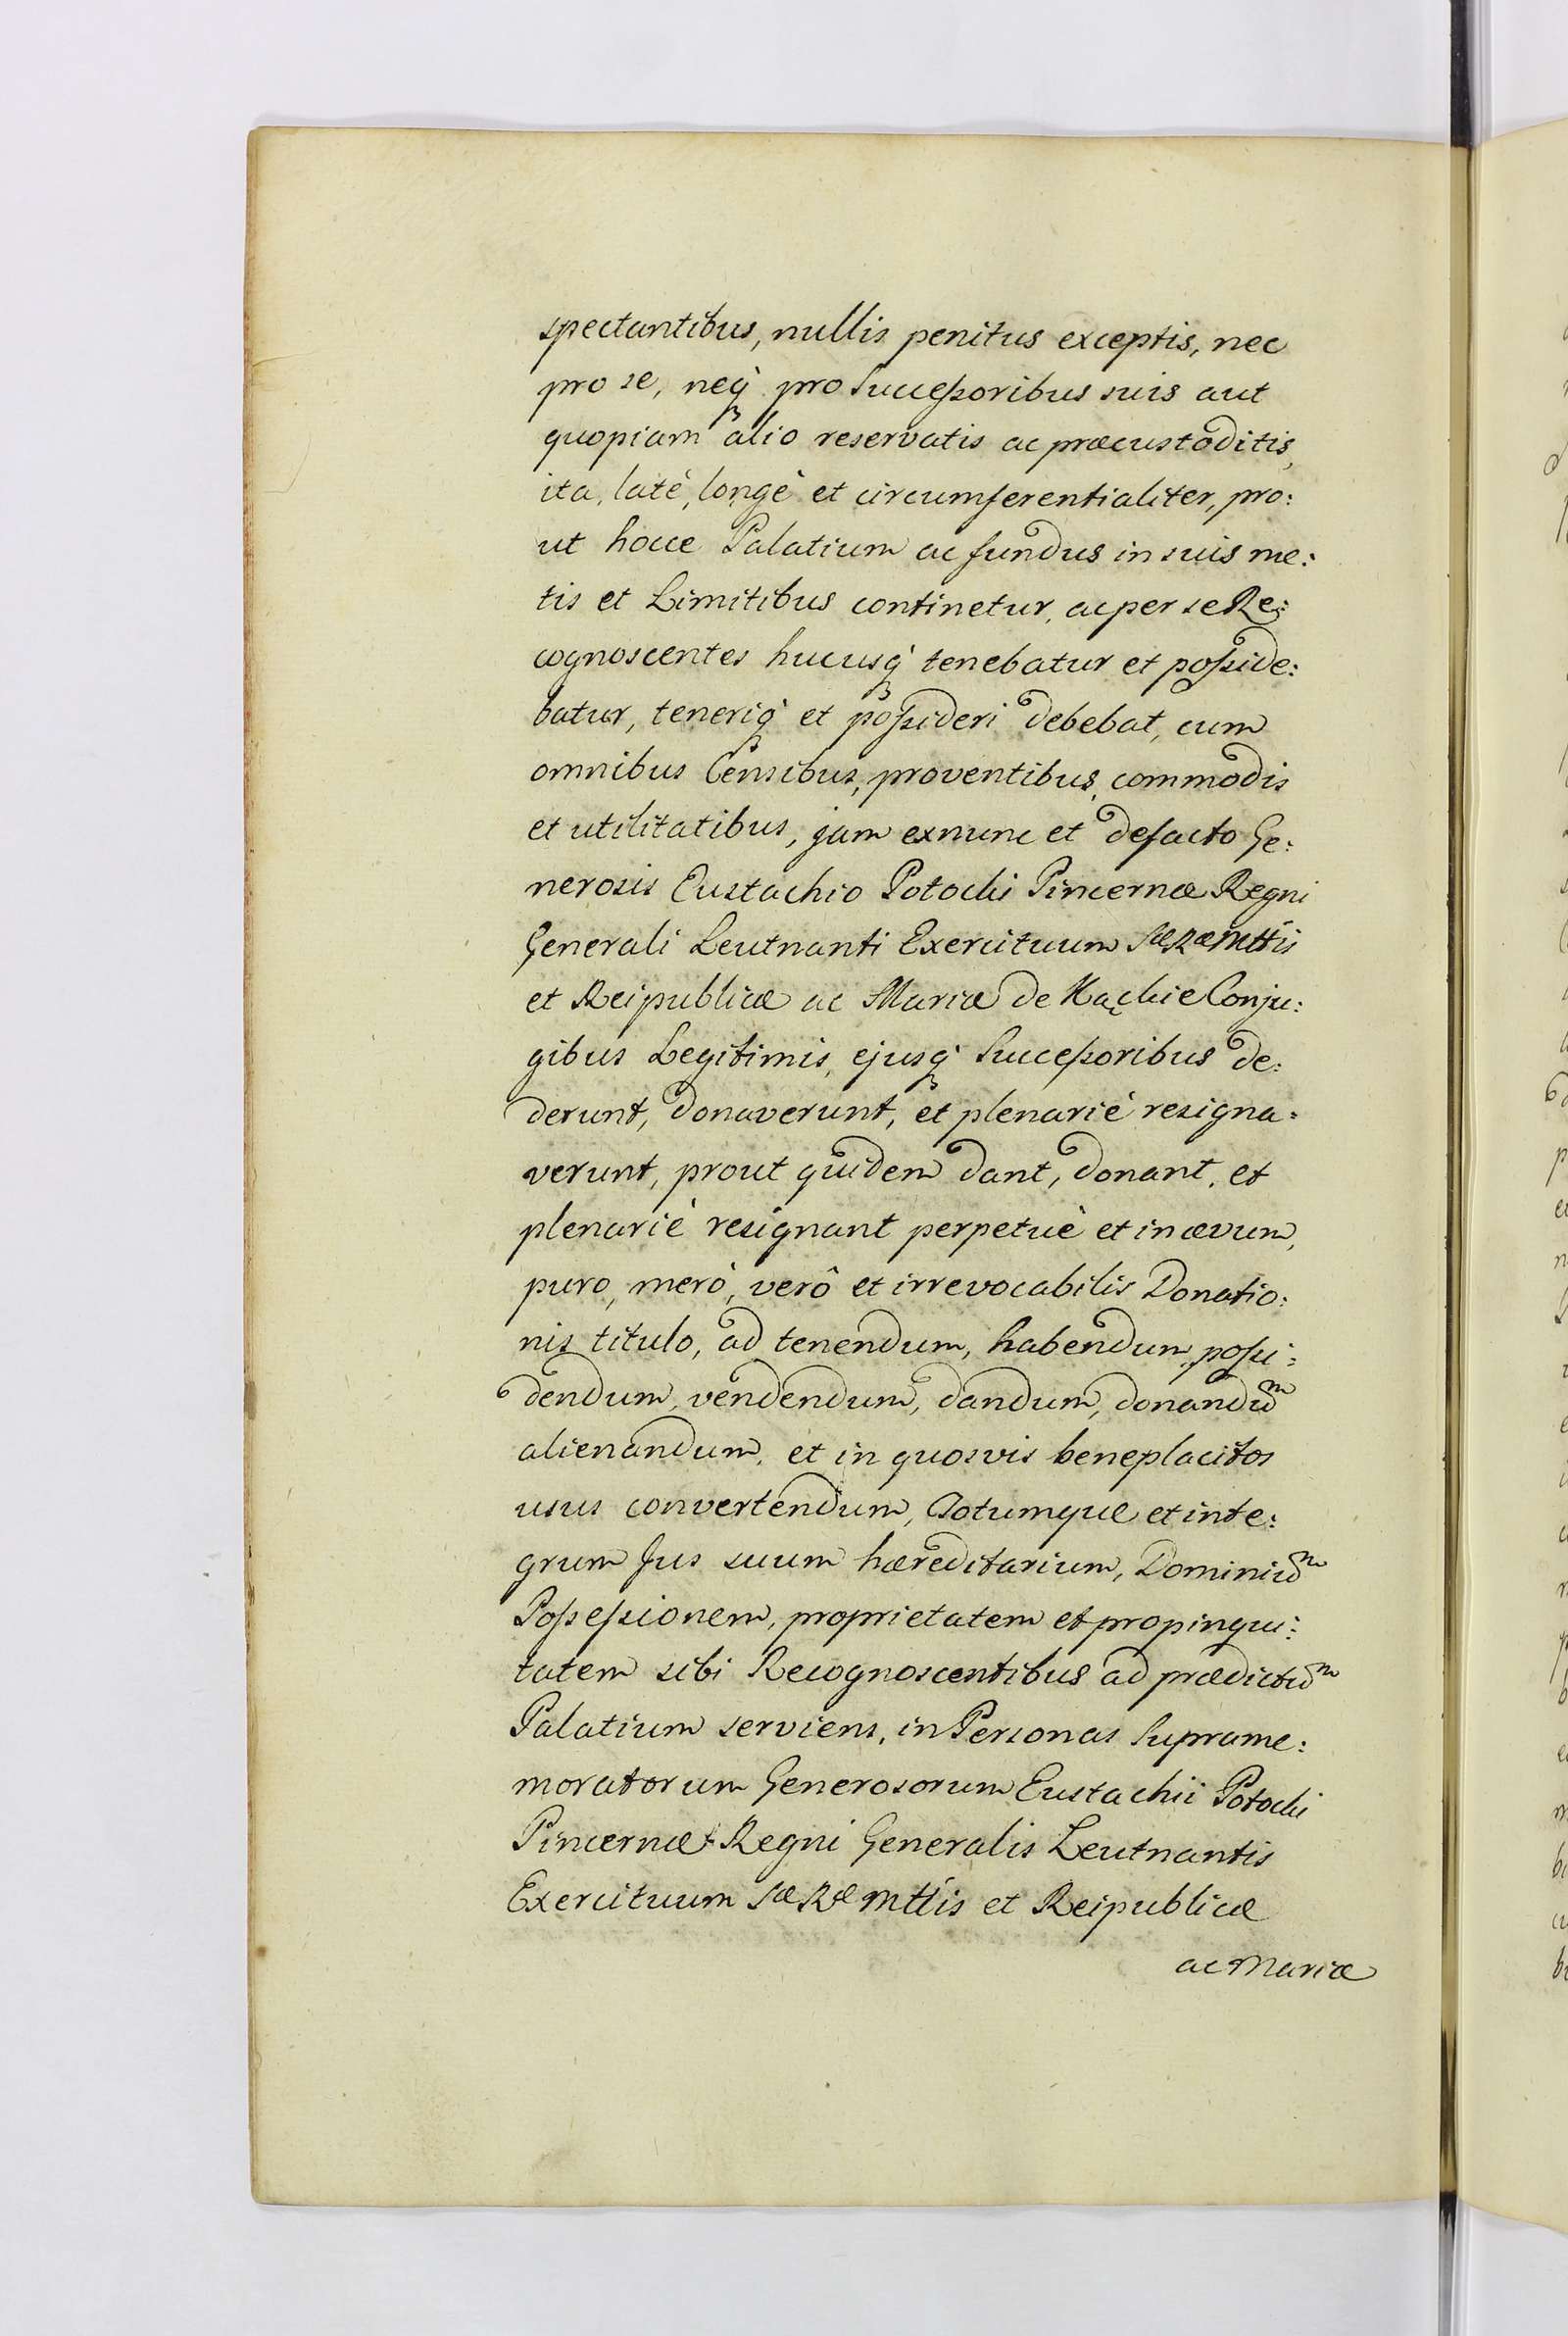 spectantibus, nullis penitus exceptis, nec
pro se, neq̀ꝫ pro Succeſsoribus suis aut
quopiam alio reservatis ac præcustoditis,
ita, latè, longè et circumferentialiter, pro:
ut hocce Palatium ac fundus in suis me:
tis et Limitibus continetur, ac per se Re:
cognoscentes hucusq̀ꝫ tenebatur et poſside:
batur, teneriq̀ꝫ et poſsideri debebat, cum
omnibus Censibus, proventibus, commodis
et utilitatibus, jam exnunc et defacto Ge:
nerosis Eustachio Potocki Pincernæ Regni
Generali Leutnanti Exercituum Sæ Ræ Mttis
et Reipublicæ ac Mariæ de Kąckie Conju:
gibus Legitimis, ejusq̀ꝫ Succeſsoribus de:
derunt, donaverunt, et plenariè resigna:
verunt, prout quidem dant, donant, et
plenariè resignant perpetuè et in ævum,
puro, merò, verô et irrevocabilis Donatio:
nis titulo, ad tenendum, habendum, poſsi:
dendum, vendendum, dandum, donandūm
alienandum, et in quosvis beneplacitos
usus convertendum, Totumque et inte:
grum Jus suum hæreditarium, Dominiūm
Poſseſsionem, proprietatem et propinqui:
tatem sibi Recognoscentibus ad prædictūm
Palatium serviens, in Personas Suprame:
moratorum Generosorum Eustachii Potocki
Pincernæ Regni Generalis Leutnantis
Exercituum Sæ Ræ Mttis et Reipublicæ
ac Mariæ